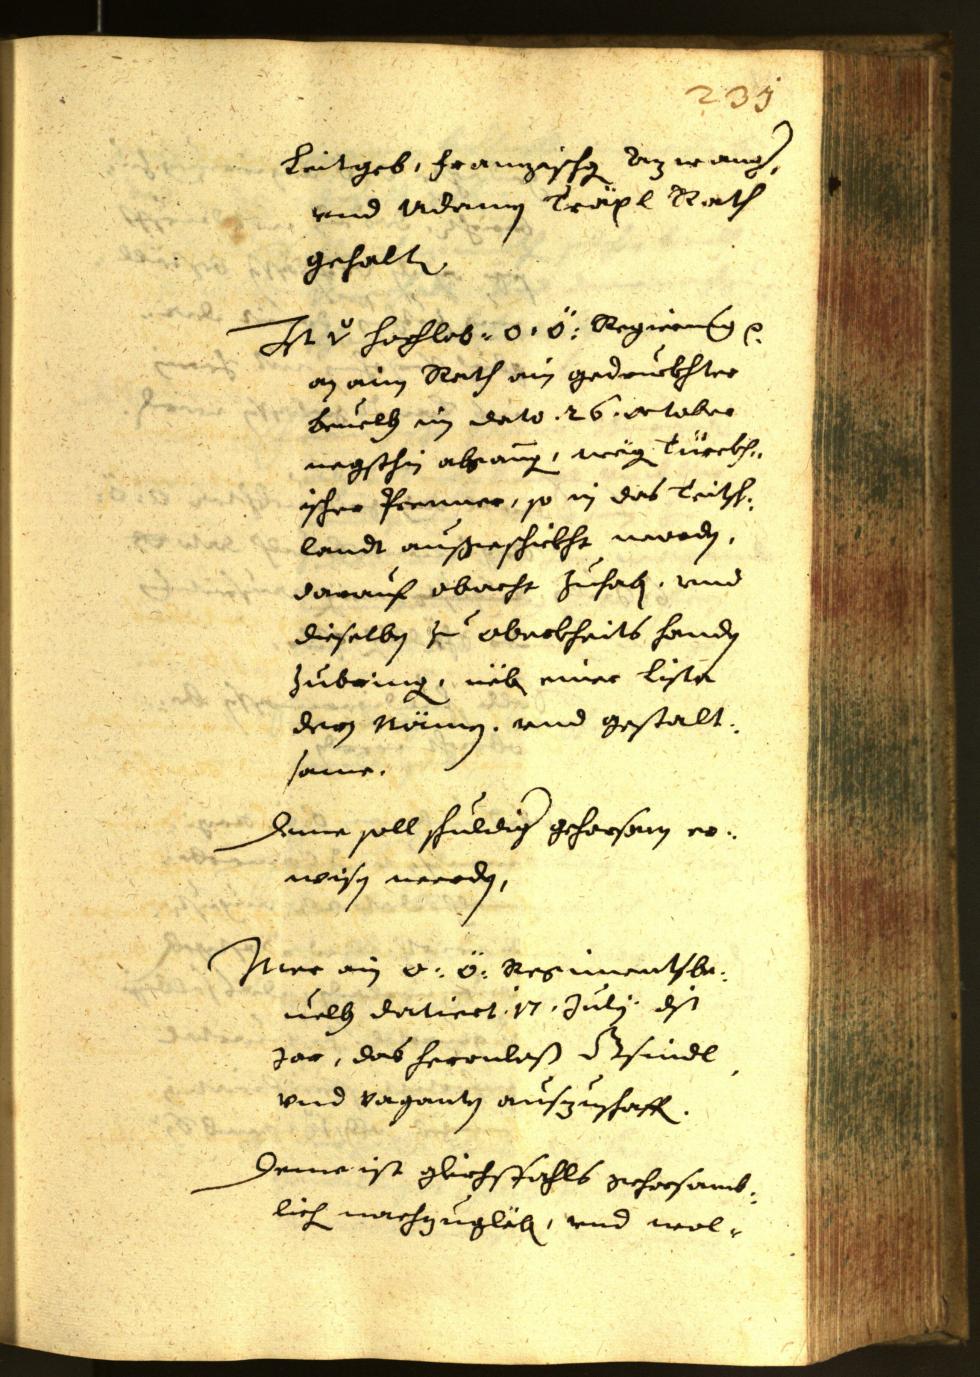 235
Leitgeb, Franzischg
vnd Adamen Träxl Rath
gehalten.
Ist v. hochlob: O: Ö: Regierung
an ain Rath ain gedruckhter
beuelh in dato .26. october
negsthin abgangen, wegen Türckh:
ischer Prenner, so in das Teitsch:
landt außgeschickht worden,
darauf obacht zuhaben, vnd
dieselben zu oberkheits handen
zubringen, neben einer Lista
dern Nämen, vnd gestalt:
same.
Deme soll schuldig gehorsam er:
wisen werden,
Mer ain o: ö: Regimentsbe:
uelh datiert .17. Julij dits
Jar, das herrnloß Gsindl,
vnd vaganten auszuschaffen.
Deme ist gleichsfahls gehorsamb:
lich nachzugleben, vnd wol-